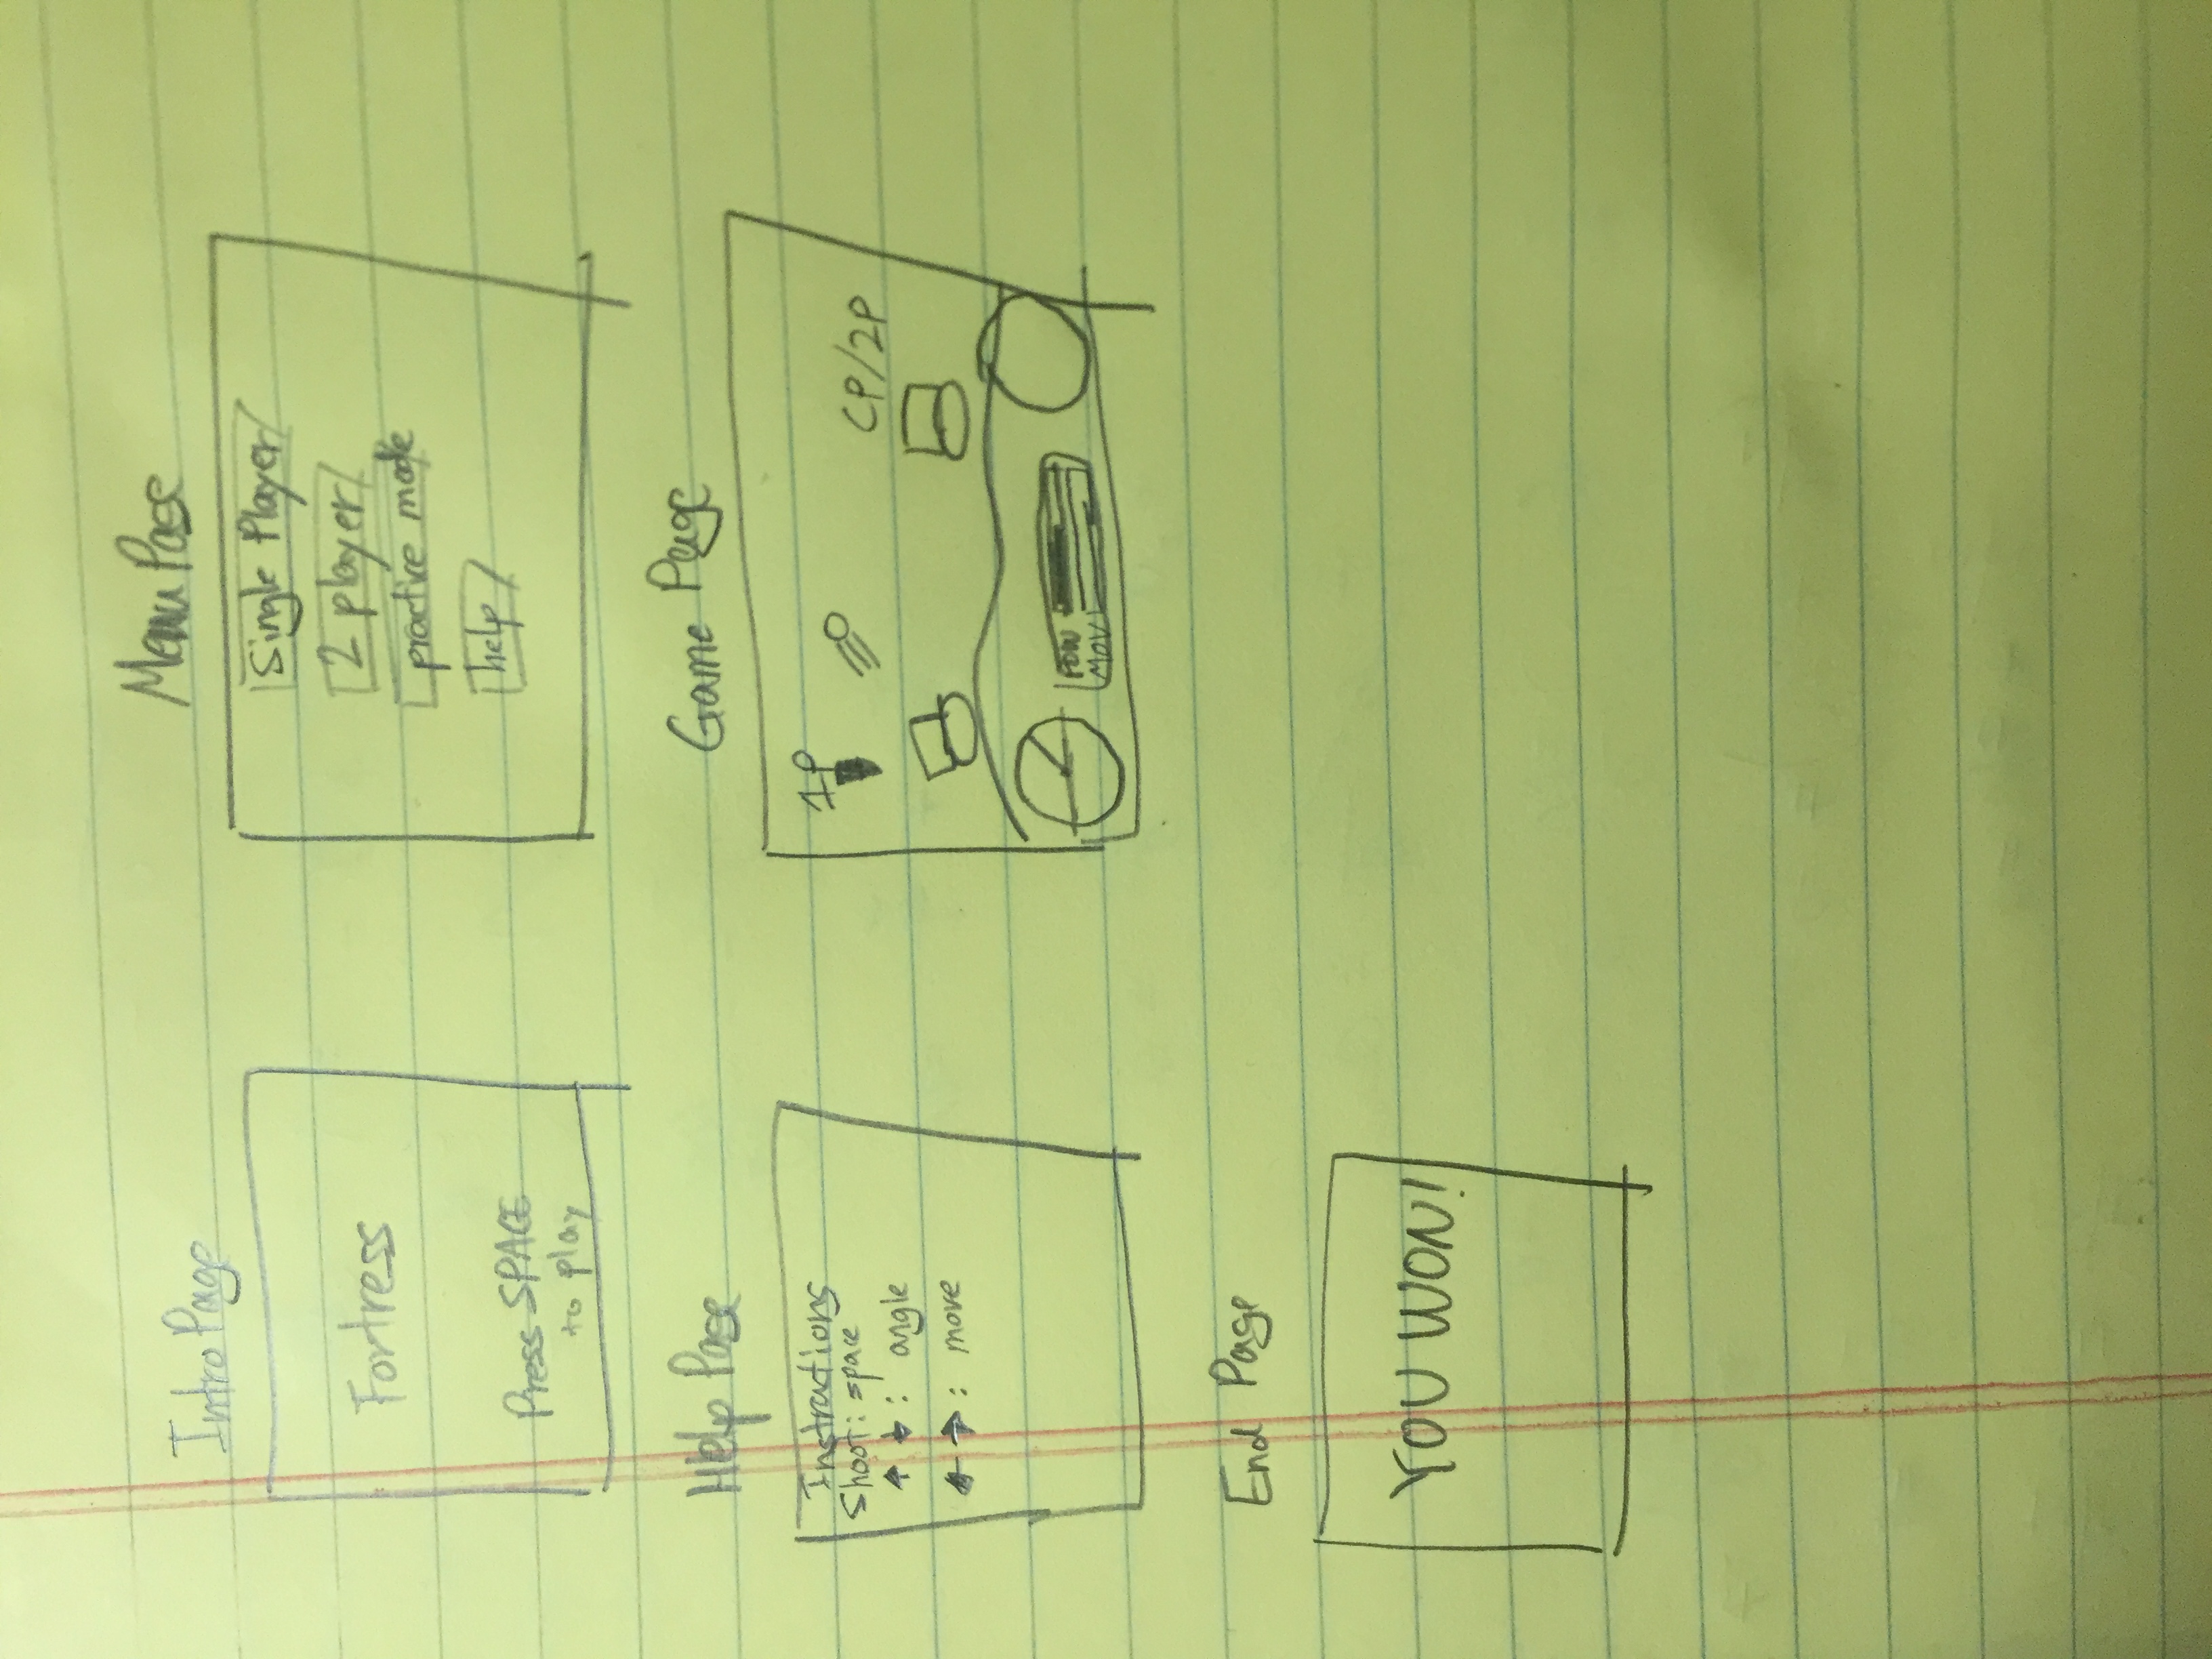 Intro Page
Fortress
Press SPACE
to play
Menu Page
Single Player
2 player
practice mode
help
Help Page
Instructions
Shoot: space
↑ ↓ : angle
← → : move
Game Page
1P
CP/2P
POW
MOV
End Page
YOU WON!